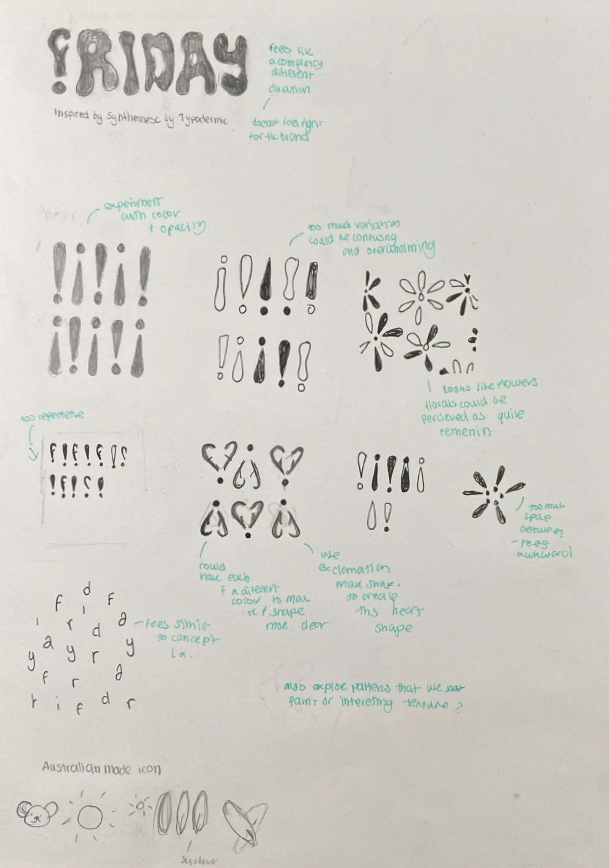 FRIDAY
Inspired by Synthemesc by Typodermic
feels like
a completely
different
direction
doesnt feel right
for the brand
experiment
with color
+ opacity
too much variation
could be confusing
and overwhelming
! looks like flowers
florals could be
percieved as quite
feminin
too repetetive
could
have each
f a different
colour to make
the f shape
more clear
use
exclamation
mark shape
to create
this heart
shape
too much
space
between
- feels
awkward
d
f i F
i r d a
y a y r y
f r a
r i f d r
- feels similar
to concept
1a.
also explore patterns that use
paint or interesting texture?
Australian made icon